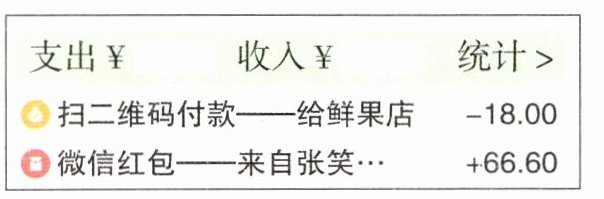 支出¥ 收入¥ 统计>
扫二维码付款——给鲜果店 -18.00
微信红包——来自张笑… +66.60